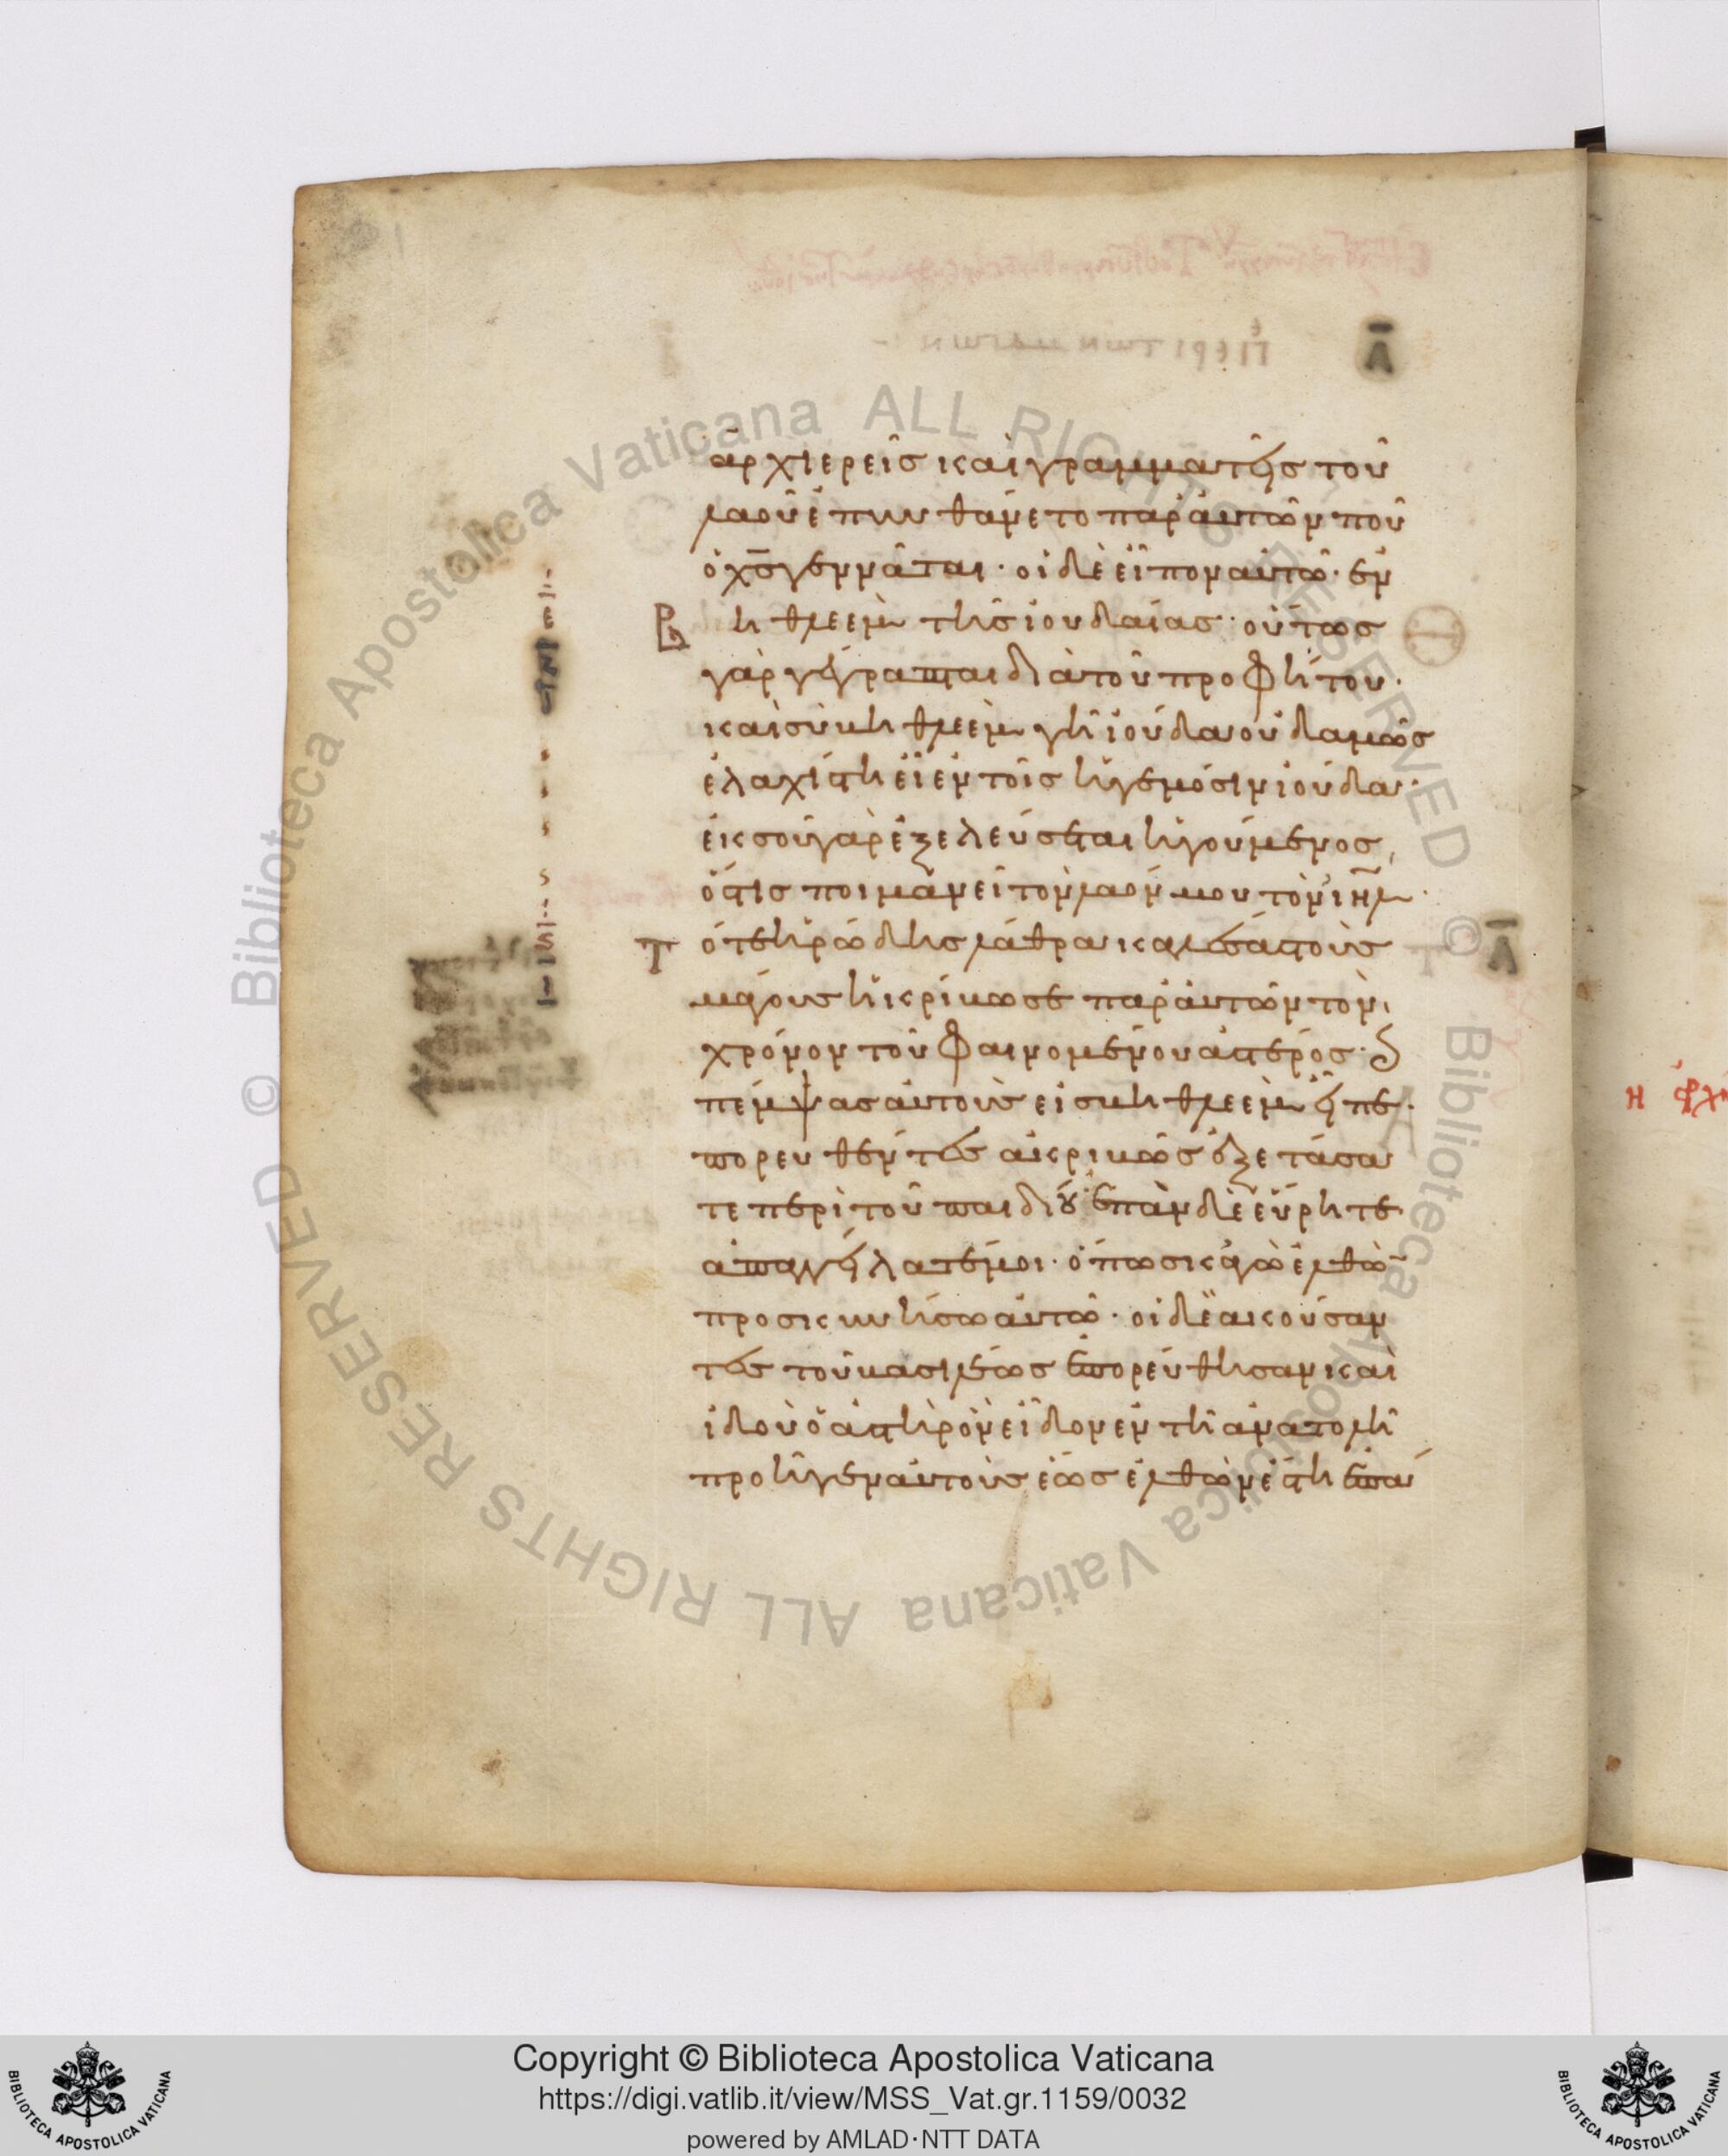 Ā
ἀρχιερεῖς καὶ γραμματεῖς τοῦ
λαοῦ ἐπυνθάνετο παρ' αὐτῶν ποῦ
ὁ χ̅ς̅ γεννᾶται· οἱ δὲ εἶπον αὐτῶ· ἐν
Βηθλεὲμ τῆς ἰουδαίας· οὕτως
γὰρ γέγραπται διὰ τοῦ προφήτου·
καὶ σὺ βηθλεὲμ γῆ ἰούδα οὐδαμῶς
ἐλαχίστη εἶ ἐν τοῖς ἡγεμόσιν ἰούδα·
ἐκ σοῦ γὰρ ἐξελεύσεται ἡγούμενος,
ὅστις ποιμανεῖ τὸν λαόν μου τὸν ι̅η̅λ̅·
Τότε ἡρώδης λάθρα καλέσας τοὺς
Ā
μάγους ἠκρίβωσε παρ' αὐτῶν τὸν
χρόνον τοῦ φαινομένου ἀστέρος· καὶ
πέμψας αὐτοὺς εἰς βηθλεὲμ εἶπε·
πορευθέντες ἀκριβῶς ἐξετάσα
τε περὶ τοῦ παιδίου· ἐπὰν δὲ εὕρητε
ἀπαγγείλατέ μοι· ὅπως κἀγὼ ἐλθὼν
προσκυνήσω αὐτῶ· οἱ δὲ ἀκούσαν
τες τοῦ βασιλέως ἐπορεύθησαν καὶ
ἰδοὺ ὁ ἀστὴρ ὃν εἶδον ἐν τῆ ἀνατολῆ
προῆγεν αὐτοὺς ἕως ἐλθὼν ἔστη ἐπά
Copyright © Biblioteca Apostolica Vaticana
https://digi.vatlib.it/view/MSS_Vat.gr.1159/0032
powered by AMLAD·NTT DATA
BIBLIOTECA APOSTOLICA VATICANA
BIBLIOTECA APOSTOLICA VATICANA
© Biblioteca Apostolica Vaticana ALL RIGHTS RESERVED © Biblioteca Apostolica Vaticana ALL RIGHTS RESERVED